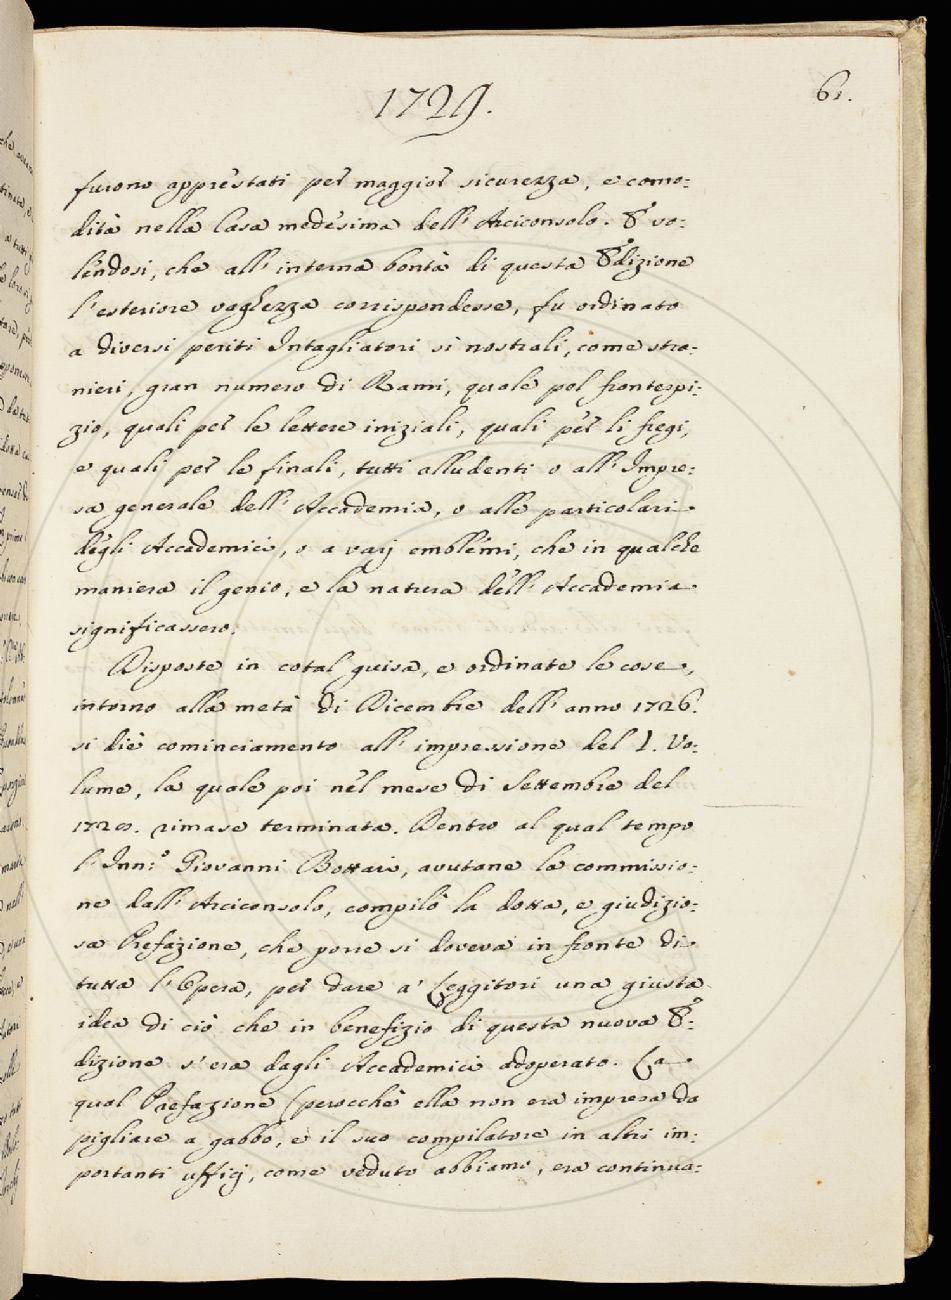 1729.
61.
furono apprestati per maggior sicurezza, e como=
dità nella Casa medesima dell' Arciconsolo. E vo=
lendosi, che all' interna bontà di questa Edizione
l'esteriore vaghezza corrispondesse, fu ordinato
a diversi periti Intagliatori sì nostrali, come stra=
nieri, gran numero di Rami, quale pel frontespi=
zio, quali per le lettere iniziali, quali per li fregi,
e quali per le finali, tutti alludenti o all' Impre=
sa generale dell' Accademia, o alle particolari
degli Accademici, o a varj emblemi, che in qualche
maniera il genio, e la natura dell' Accademia
significassero.
Disposte in cotal guisa, e ordinate le cose,
intorno alla metà di Dicembre dell' anno 1726.
si diè cominciamento all' impressione del I. Vo=
lume, la quale poi nel mese di Settembre del
rimase terminata. Dentro al qual tempo
l' Inn:º Giovanni Bottari, avutane la commissio=
ne dall' Arciconsolo, compilò la dotta, e giudizio=
sa Prefazione, che porre si doveva in fronte di
tutta l' Opera, per dare a' Leggitori una giusta
idea di ciò che in benefizio di questa nuova E=
dizione s' era dagli Accademici adoperato. La
qual Prefazione (perocchè ella non era impresa da
pigliare a gabbo, e il suo compilatore in altri im=
portanti uffizj, come veduto abbiamo, era continua=